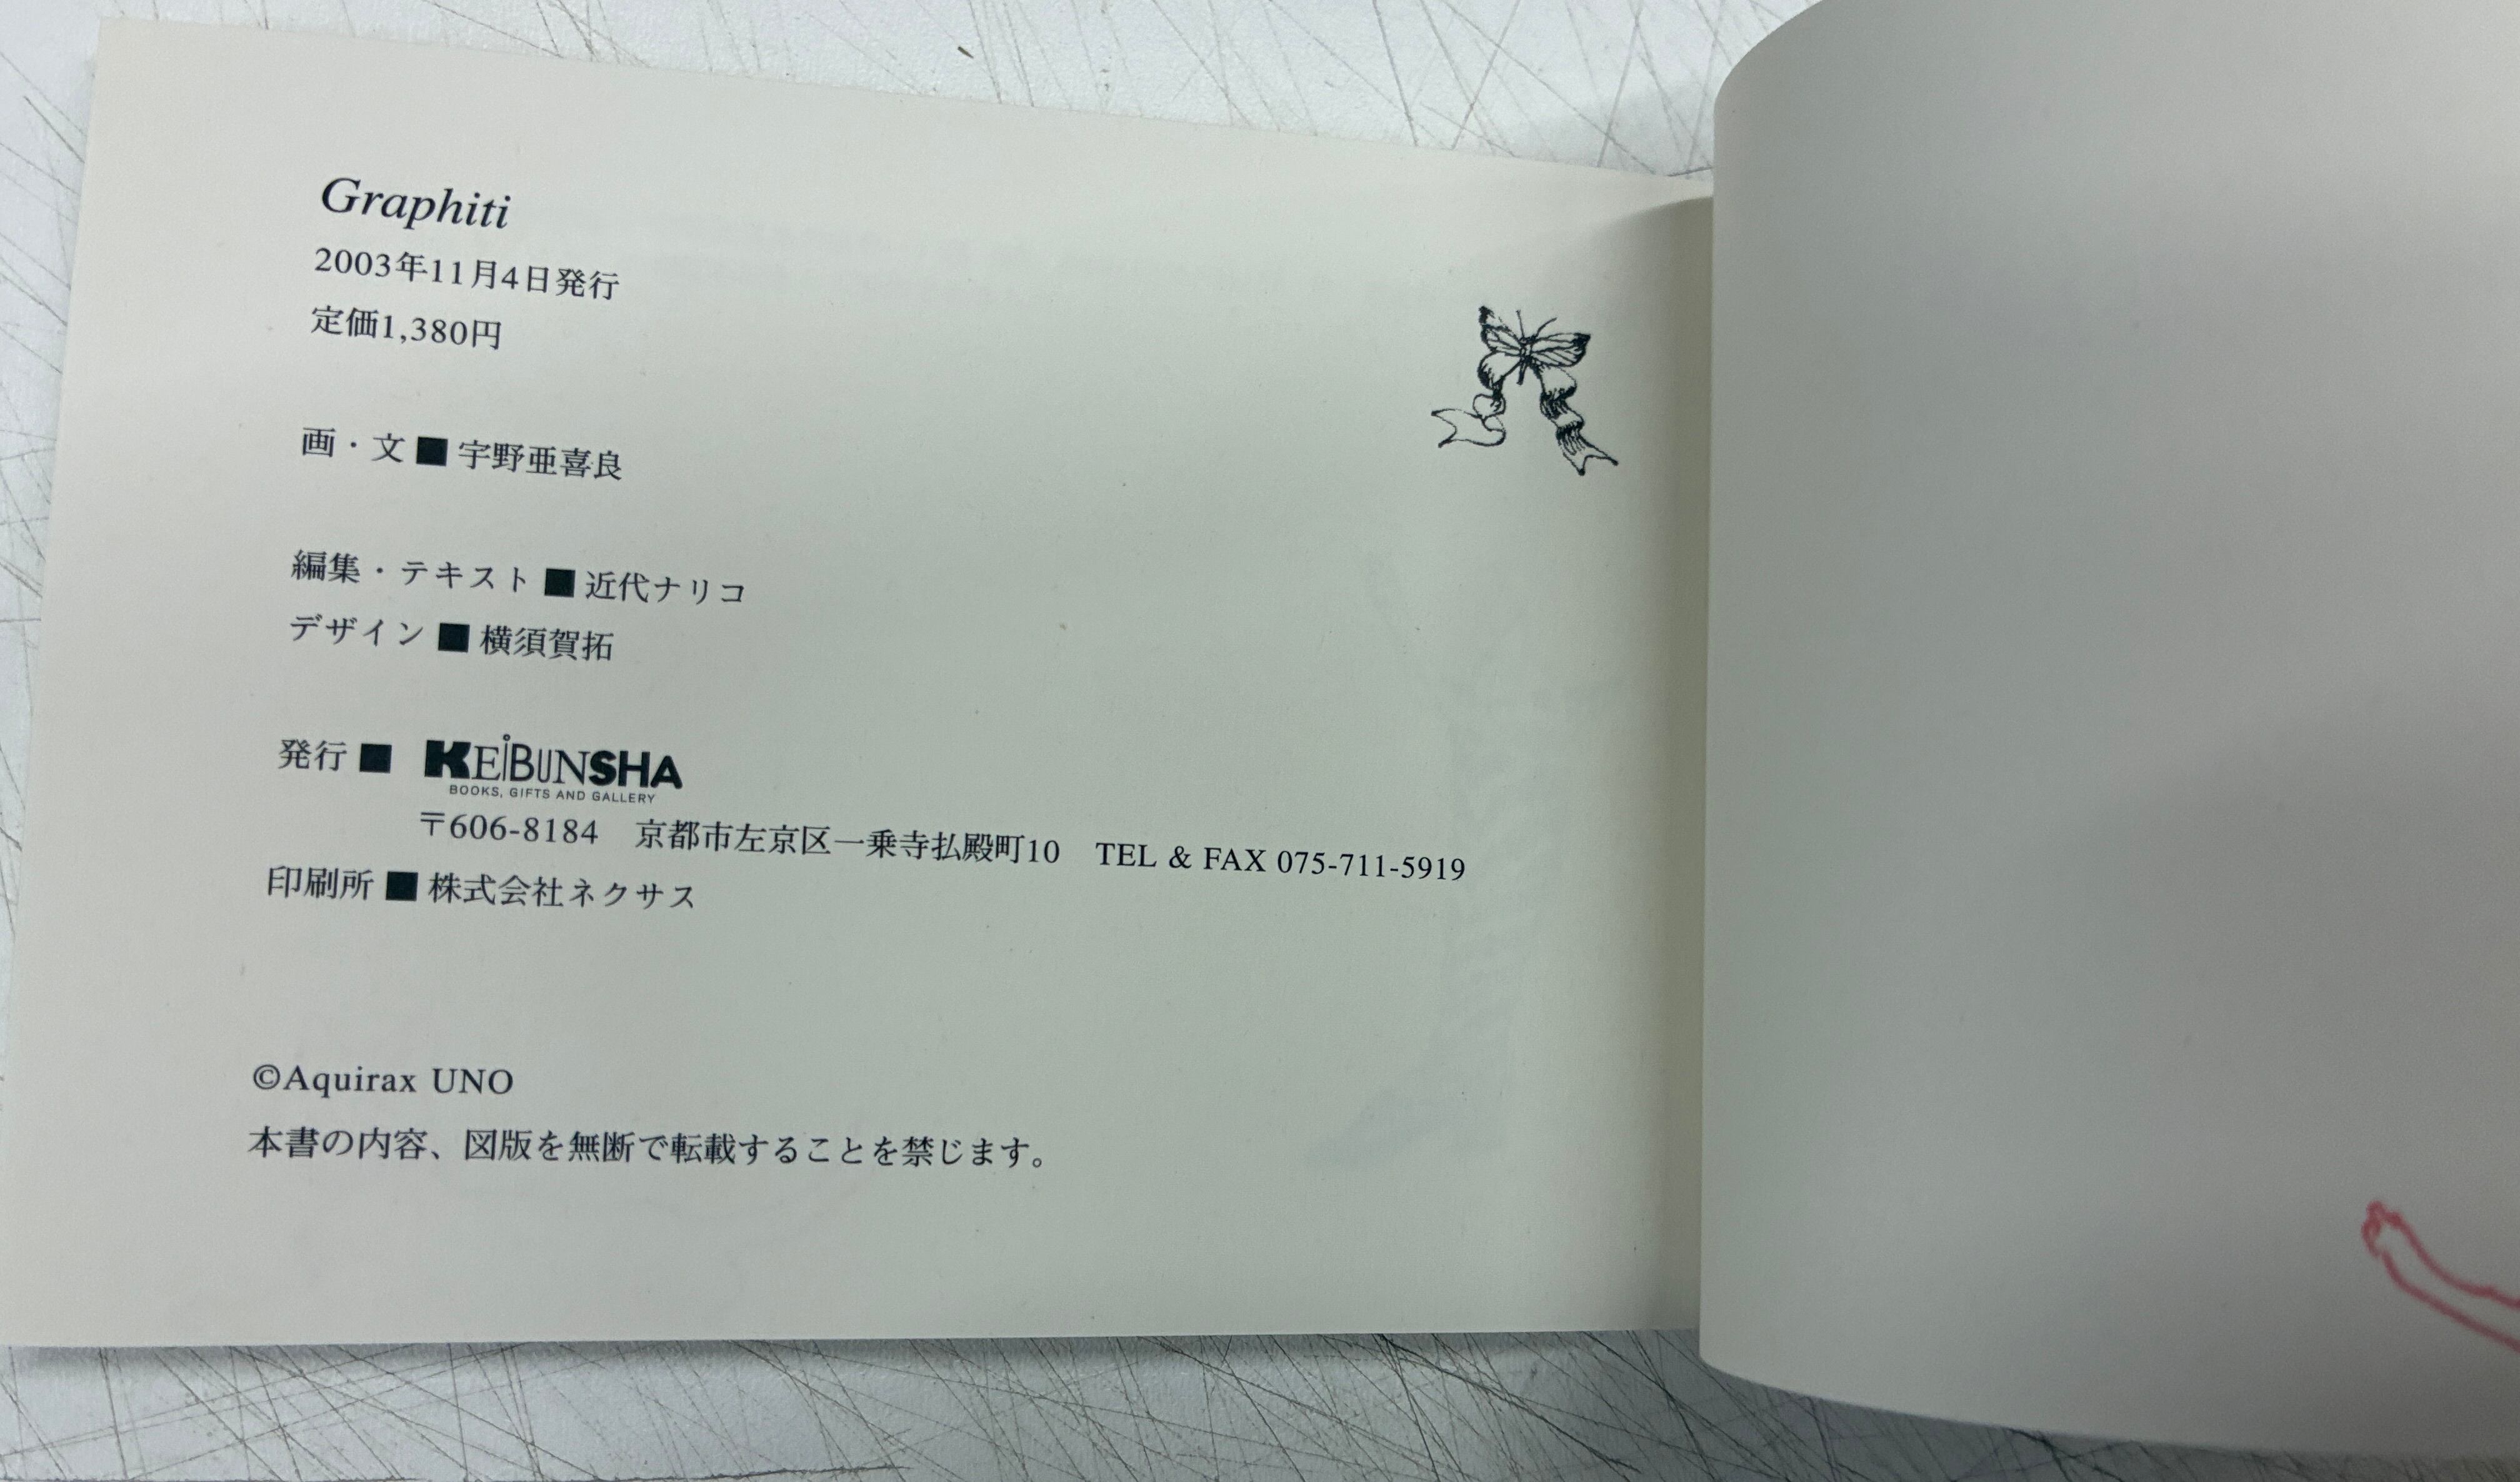 Graphiti
2003年11月4日発行
定価1,380円
画・文■宇野亜喜良
編集・テキスト■近代ナリコ
デザイン■横須賀拓
発行■ KEiBUNSHA
BOOKS, GIFTS AND GALLERY
〒606-8184　京都市左京区一乗寺払殿町10　TEL & FAX 075-711-5919
印刷所■株式会社ネクサス
©Aquirax UNO
本書の内容、図版を無断で転載することを禁じます。